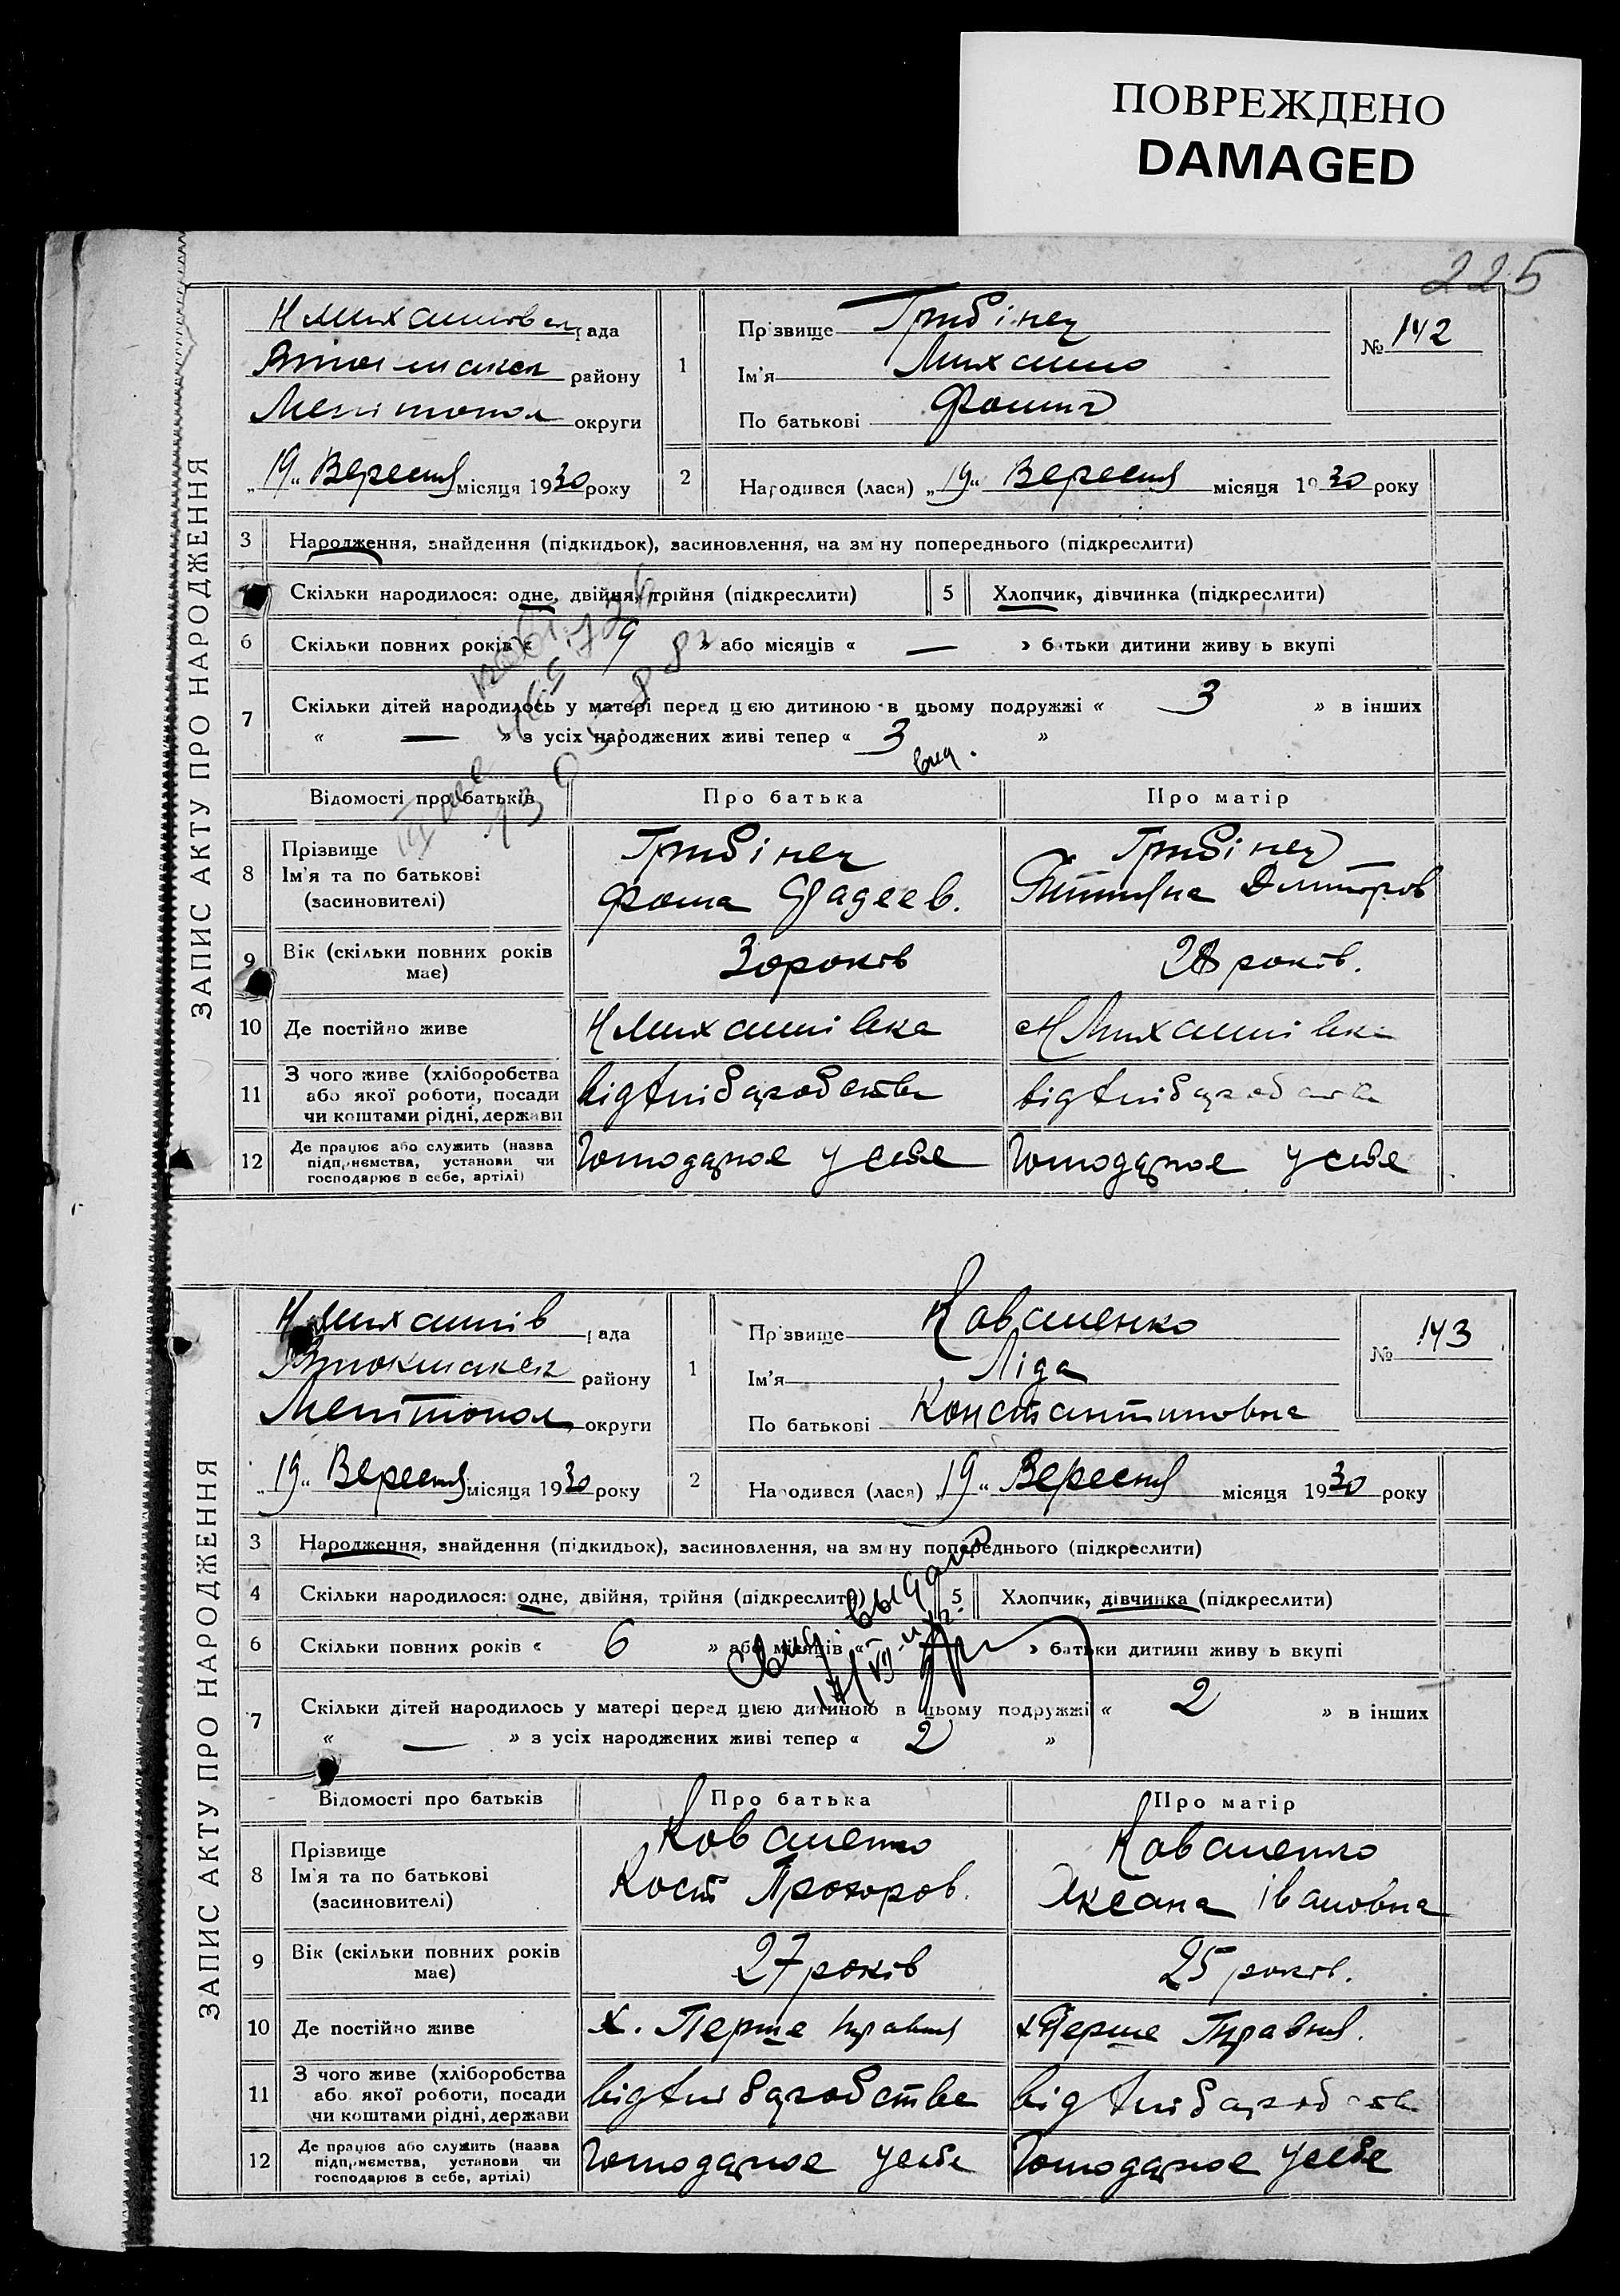 ПОВРЕЖДЕНО
DAMAGED
225
ЗАПИС АКТУ ПРО НАРОДЖЕННЯ
Н Михайлівськ рада
району
Мелітопол округи
„19“ Вересня місяця 1930 року
1
Прізвище Грибінец
Ім'я Михайло
По батькові Фомич
№ 142
2
Народився (лася) „19“ Вересня місяця 1930 року
3 Народження, знайдення (підкидьок), засиновлення, на зміну попереднього (підкреслити)
Скільки народилося: одне, двійня, трійня (підкреслити)
5 Хлопчик, дівчинка (підкреслити)
6 Скільки повних років « 9 » або місяців « — » батьки дитини живуть вкупі
7 Скільки дітей народилось у матері перед цією дитиною в цьому подружжі « 3 » в інших
« — » з усіх народжених живі тепер « 3 »
Відомості про батьків Про батька Про матір
8 Прізвище Ім'я та по батькові (засиновителі)
Грибінец Грибінец
Фома Фадеев. Дмитров
9 Вік (скільки повних років має) 30 років 28 років.
10 Де постійно живе Н Михайлівка Н Михайлівка
11 З чого живе (хліборобства або якої роботи, посади чи коштами рідні, держави від хліборобства від хліборобства
12 Де працює або служить (назва підприємства, установи чи господарює в себе, артілі) Господарює у себе Господарює у себе
ЗАПИС АКТУ ПРО НАРОДЖЕННЯ
Н Михайлів рада
Втокмакск району
Мелітопол округи
„19“ Вересня місяця 1930 року
1
Прізвище Коваленко
Ім'я Ліда
По батькові Константиновна
№ 143
2
Народився (лася) „19“ Вересня місяця 1930 року
3 Народження, знайдення (підкидьок), засиновлення, на зміну попереднього (підкреслити)
4 Скільки народилося: одне, двійня, трійня (підкреслити)
5 Хлопчик, дівчинка (підкреслити)
6 Скільки повних років « 6 » або місяців « » батьки дитини живуть вкупі
7 Скільки дітей народилось у матері перед цією дитиною в цьому подружжі « 2 » в інших
« — » з усіх народжених живі тепер « 2 »
Свид. выдано
Відомості про батьків Про батька Про матір
8 Прізвище Ім'я та по батькові (засиновителі)
Коваленко Коваленко
Кост Прохоров. Оксана Івановна
9 Вік (скільки повних років має) 27 років 25 років.
10 Де постійно живе х. Перше Травня х Перше Травня.
11 З чого живе (хліборобства або якої роботи, посади чи коштами рідні, держави від хліборобства від хліборобства
12 Де працює або служить (назва підприємства, установи чи господарює в себе, артілі) Господарює у себе Господарює у себе